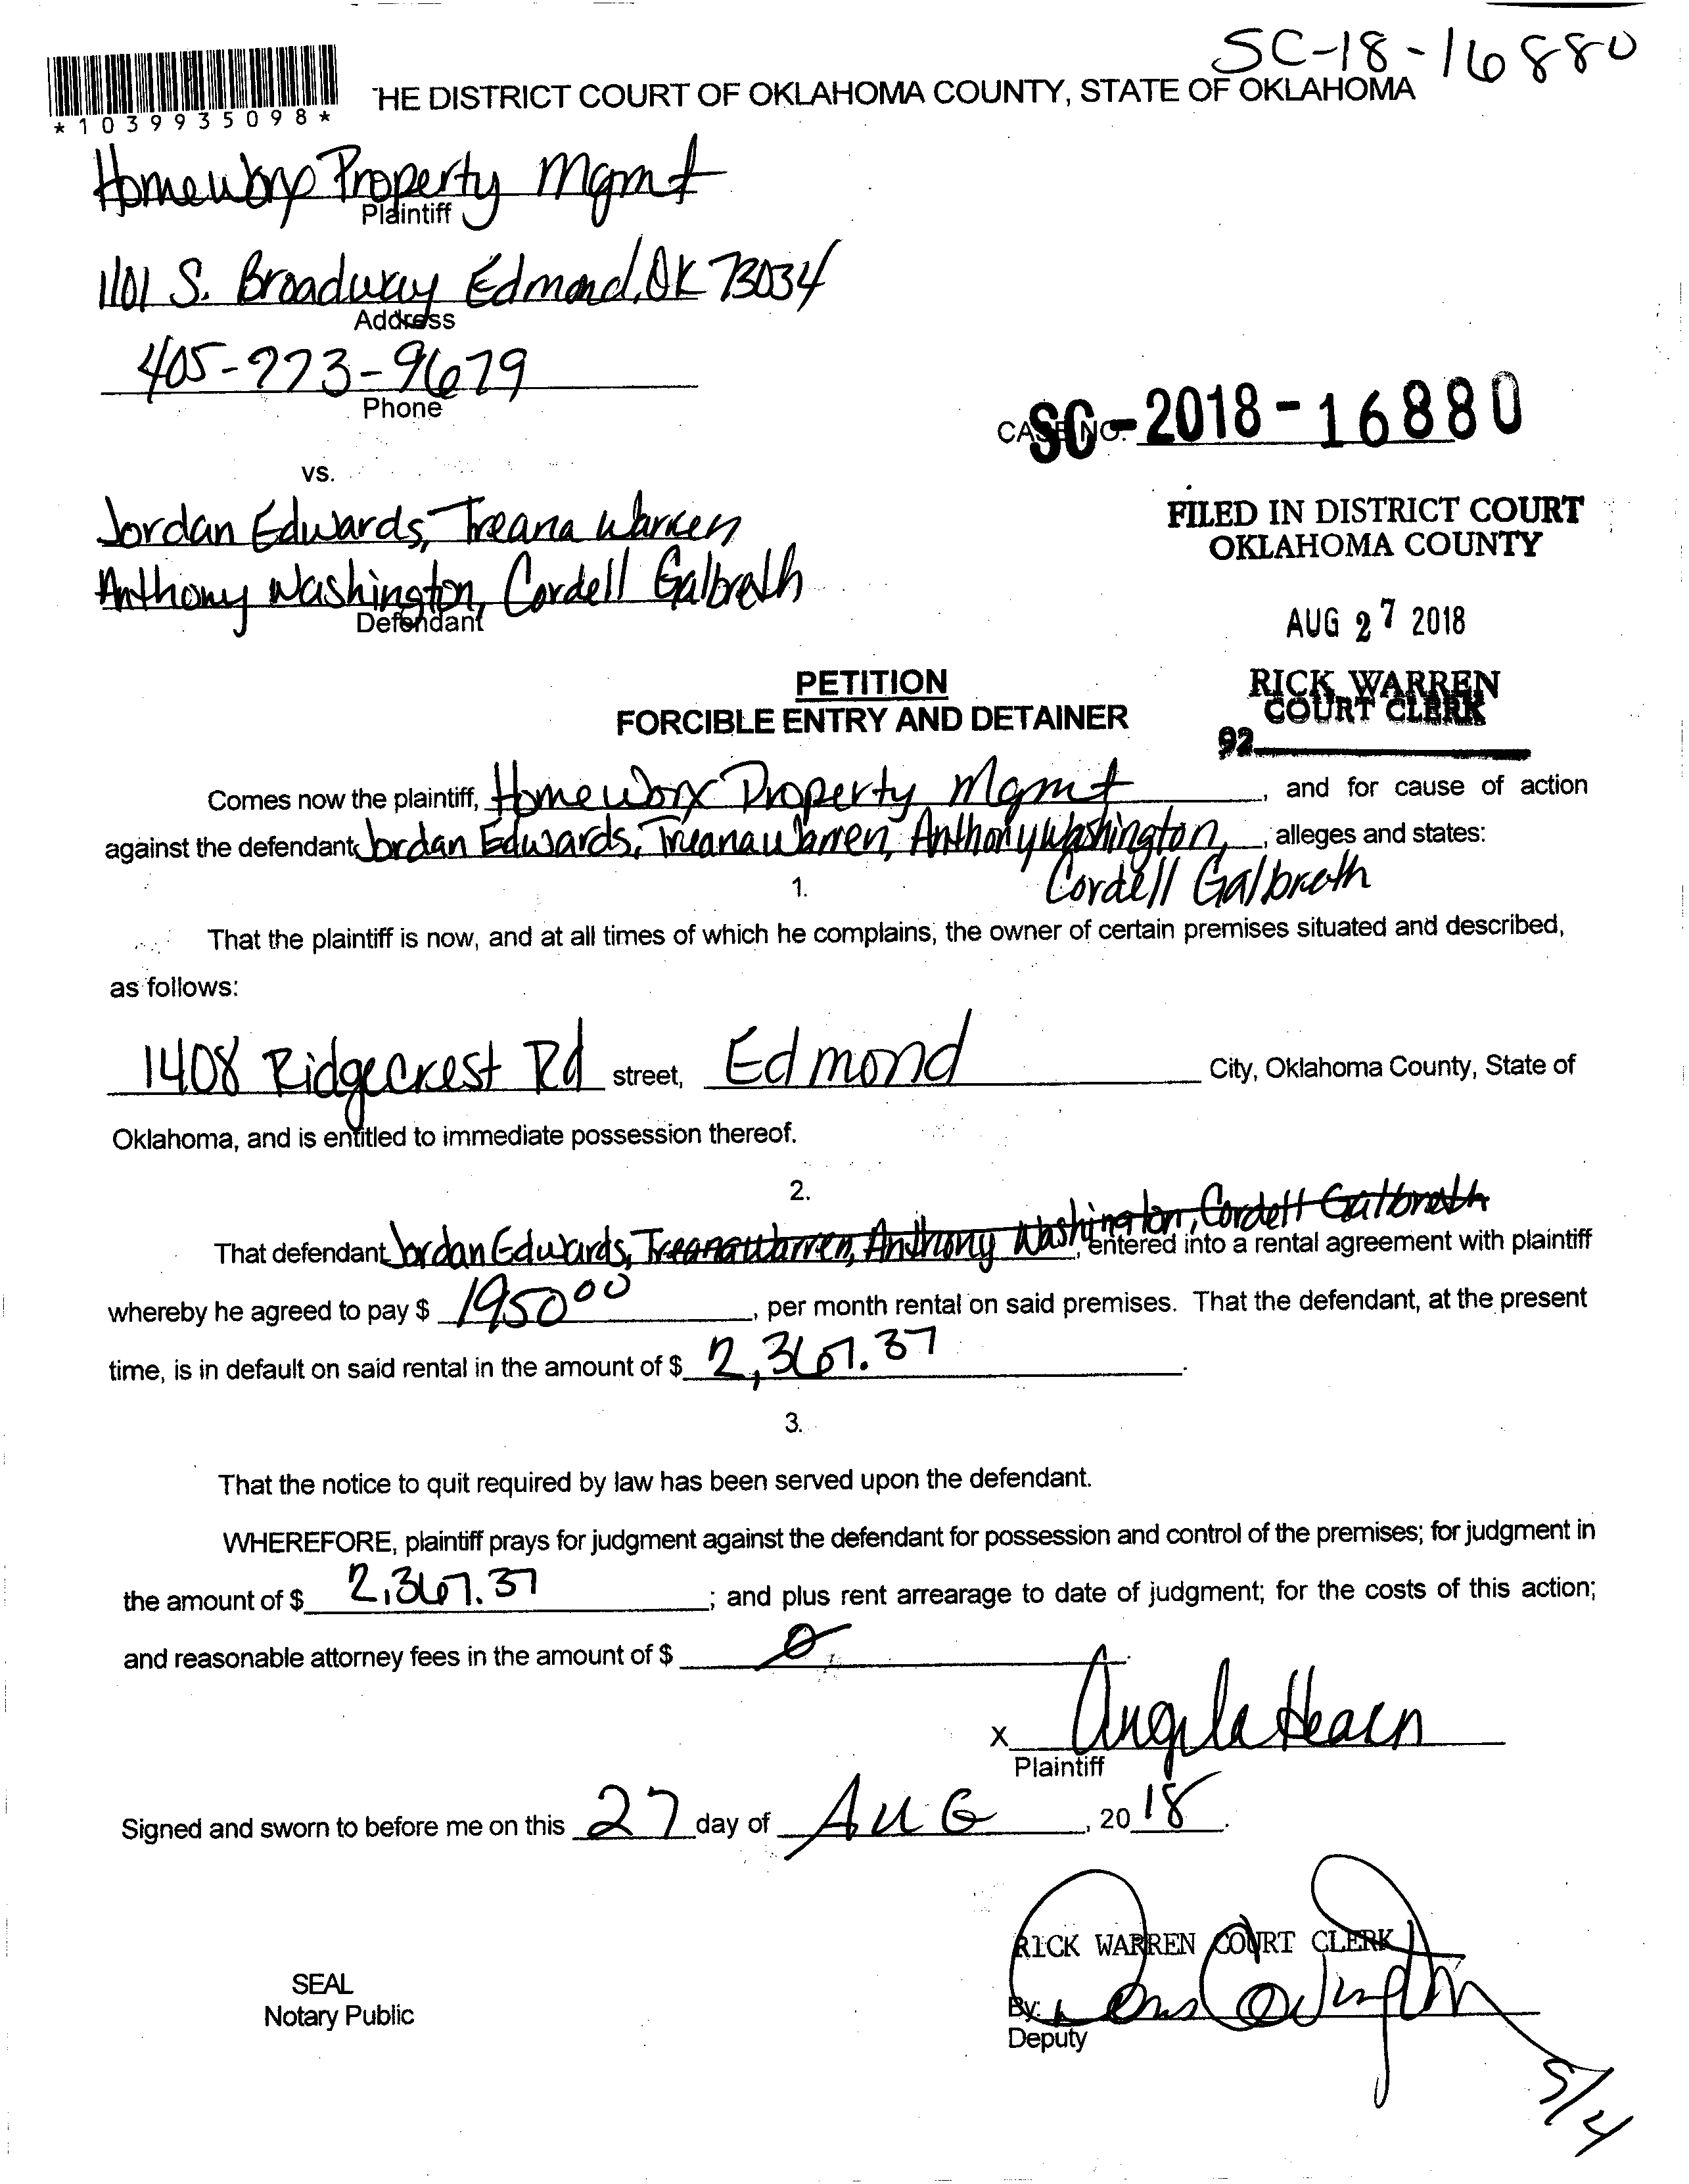 SC-18-16880
*1039935098*
THE DISTRICT COURT OF OKLAHOMA COUNTY, STATE OF OKLAHOMA
Homeworx Property Mgmt
Plaintiff
1101 S. Broadway Edmond, OK 73034
Address
405-273-9679
Phone
CASE NO. SC-2018-16880
vs.
Jordan Edwards, Treana Warren
Anthony Washington, Cordell Galbreth
Defendant
FILED IN DISTRICT COURT
OKLAHOMA COUNTY
AUG 27 2018
RICK WARREN
COURT CLERK
92
PETITION
FORCIBLE ENTRY AND DETAINER
Comes now the plaintiff, Homeworx Property Mgmt, and for cause of action
against the defendant, Jordan Edwards, Treana Warren, Anthony Washington, , alleges and states:
Cordell Galbreth
1.
That the plaintiff is now, and at all times of which he complains, the owner of certain premises situated and described,
as follows:
1408 Ridgecrest Rd street, Edmond City, Oklahoma County, State of
Oklahoma, and is entitled to immediate possession thereof.
2.
That defendant Jordan Edwards, Treana Warren, Anthony Washington, Cordell Galbreth, entered into a rental agreement with plaintiff
whereby he agreed to pay $ 1950 00, per month rental on said premises. That the defendant, at the present
time, is in default on said rental in the amount of $ 2,367.37.
3.
That the notice to quit required by law has been served upon the defendant.
WHEREFORE, plaintiff prays for judgment against the defendant for possession and control of the premises; for judgment in
the amount of $ 2,367.37; and plus rent arrearage to date of judgment; for the costs of this action;
and reasonable attorney fees in the amount of $ 0
x Angela Hearn
Plaintiff
Signed and sworn to before me on this 27 day of AUG, 20 18.
RICK WARREN COURT CLERK
SEAL
Notary Public
By:
Deputy
5/4